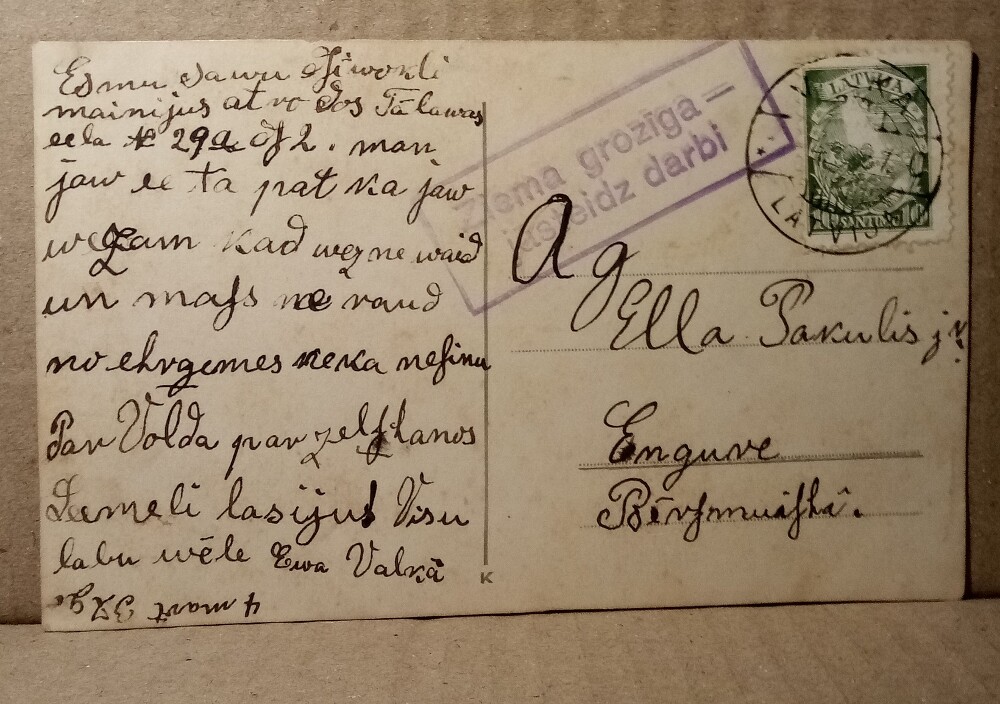 Esmu sawu dfiwokli
mainijus atrodos Tālawas
eela № 29a df 2. man
jaw ee ta pat ka jaw
wezam kad wezne waid
un mafs ne raud
no ehrgemes neka nefinu
Par Volda par
Leemeli lasijus! Visu
labu wēle Ewa Valkā
4 mart
Ziema grozīga —
jāsteidz darbi
LATVIJA
LATVIJA
SANTIMU 10
Ag
Ella Pakulis jk.
Engure
Bērfmuifhā.
K